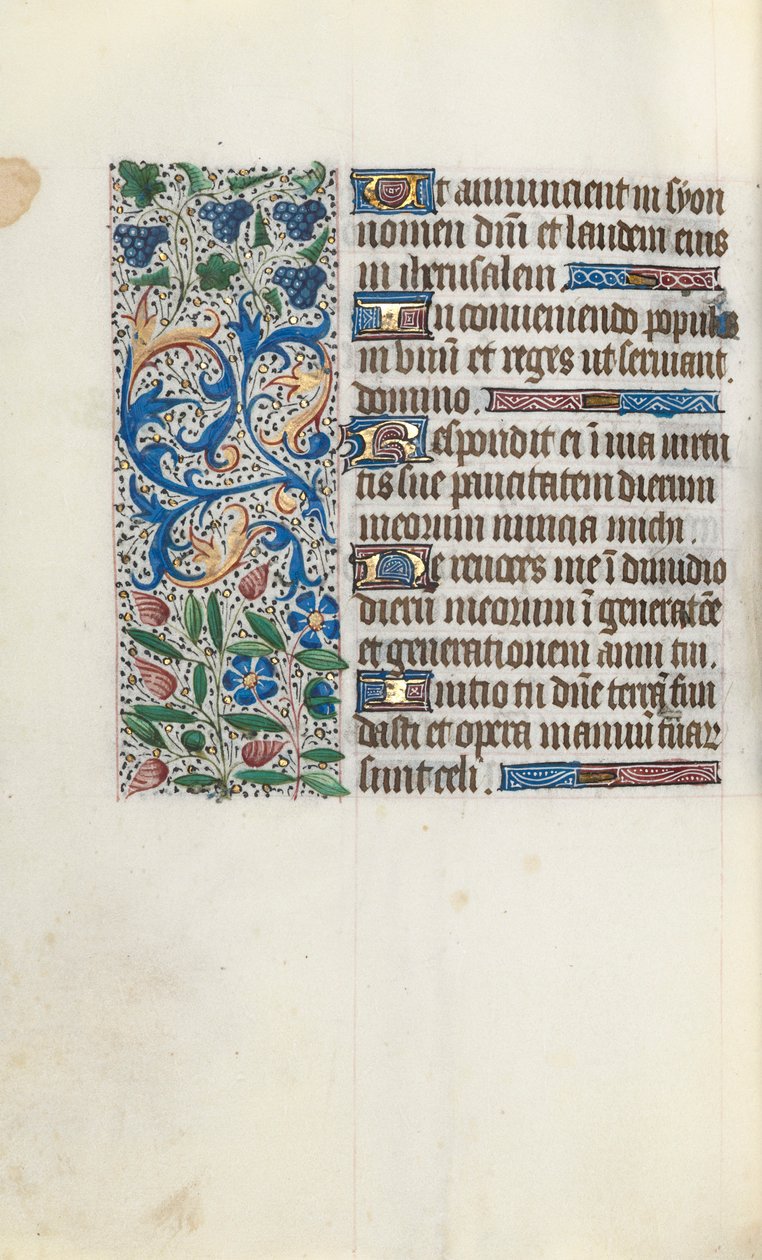 Ut annuncient in syon
nomen dnī et laudem eius
in iherusalem
In conueniendo populos
in vnuū et reges ut seruiant.
domino.
Respondit ei ī uia uirtu
tis sue paucitatem dierum
meorum nuncia michi.
Ne reuoces me ī dimidio
dierū meorum ī generatōe
et generationem anni tui.
Initio tu dn̄e terrā fun
dasti et opera manuū tuar
sunt celi.